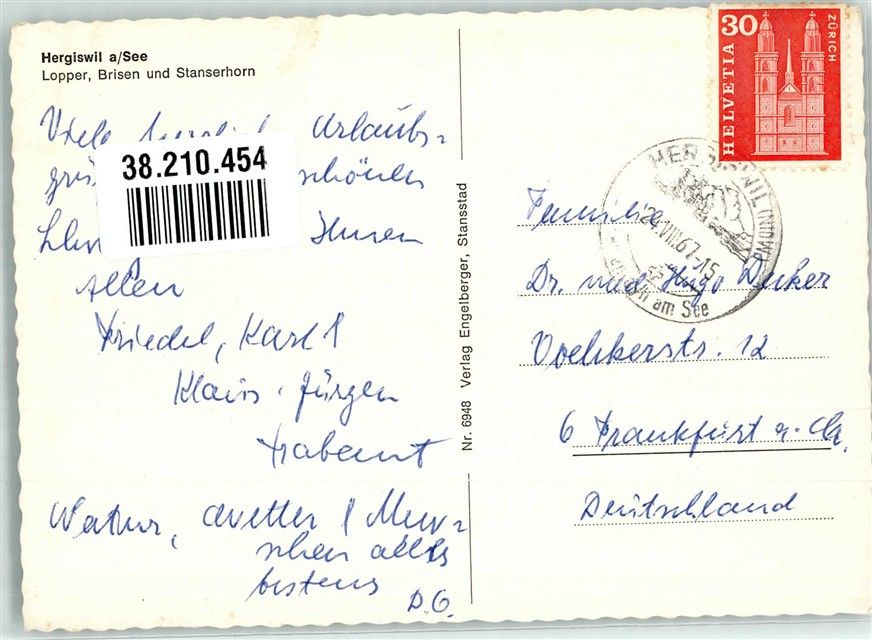 Hergiswil a/See
Lopper, Brisen und Stanserhorn
Viele Urlaubs-
grü schönen
Ihnen
Allen
Friedel, Karl &
Klaus-Jürgen
Trabent
Natur, Wetter & Men-
schen alles
bestens
D.O.
38.210.454
Nr. 6948 Verlag Engelberger, Stansstad
HELVETIA 30 ZÜRICH
HERGISWIL (NIDW)
24.VIII.67-15
am See
Familie
Dr. med. Hugo Decker
Voelckerstr. 12
6 Frankfurt a. M.
Deutschland